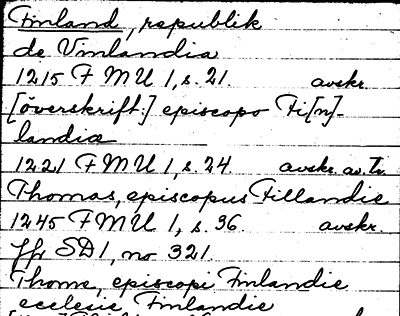 Finland, republik
de Vinlandia
1215 FMU 1, s. 21. avskr.
[överskrift:] episcopo Fi[n]-
landiæ
1221 FMU 1, s. 24 avskr. av Tr.
Thomas, episcopus Fillandie
1245 FMU 1, s. 36. avskr.
jfr SD 1, no 321.
Thome, episcopi Finlandie
ecclesie Finlandie